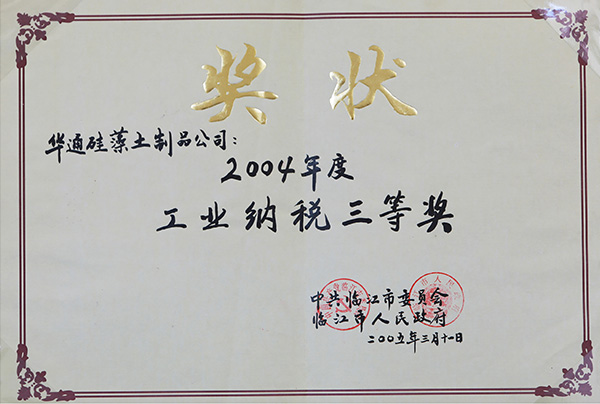 奖状
华通硅藻土制品公司：
2004年度
工业纳税三等奖
中共临江市委员会
临江市人民政府
二00五年三月十一日